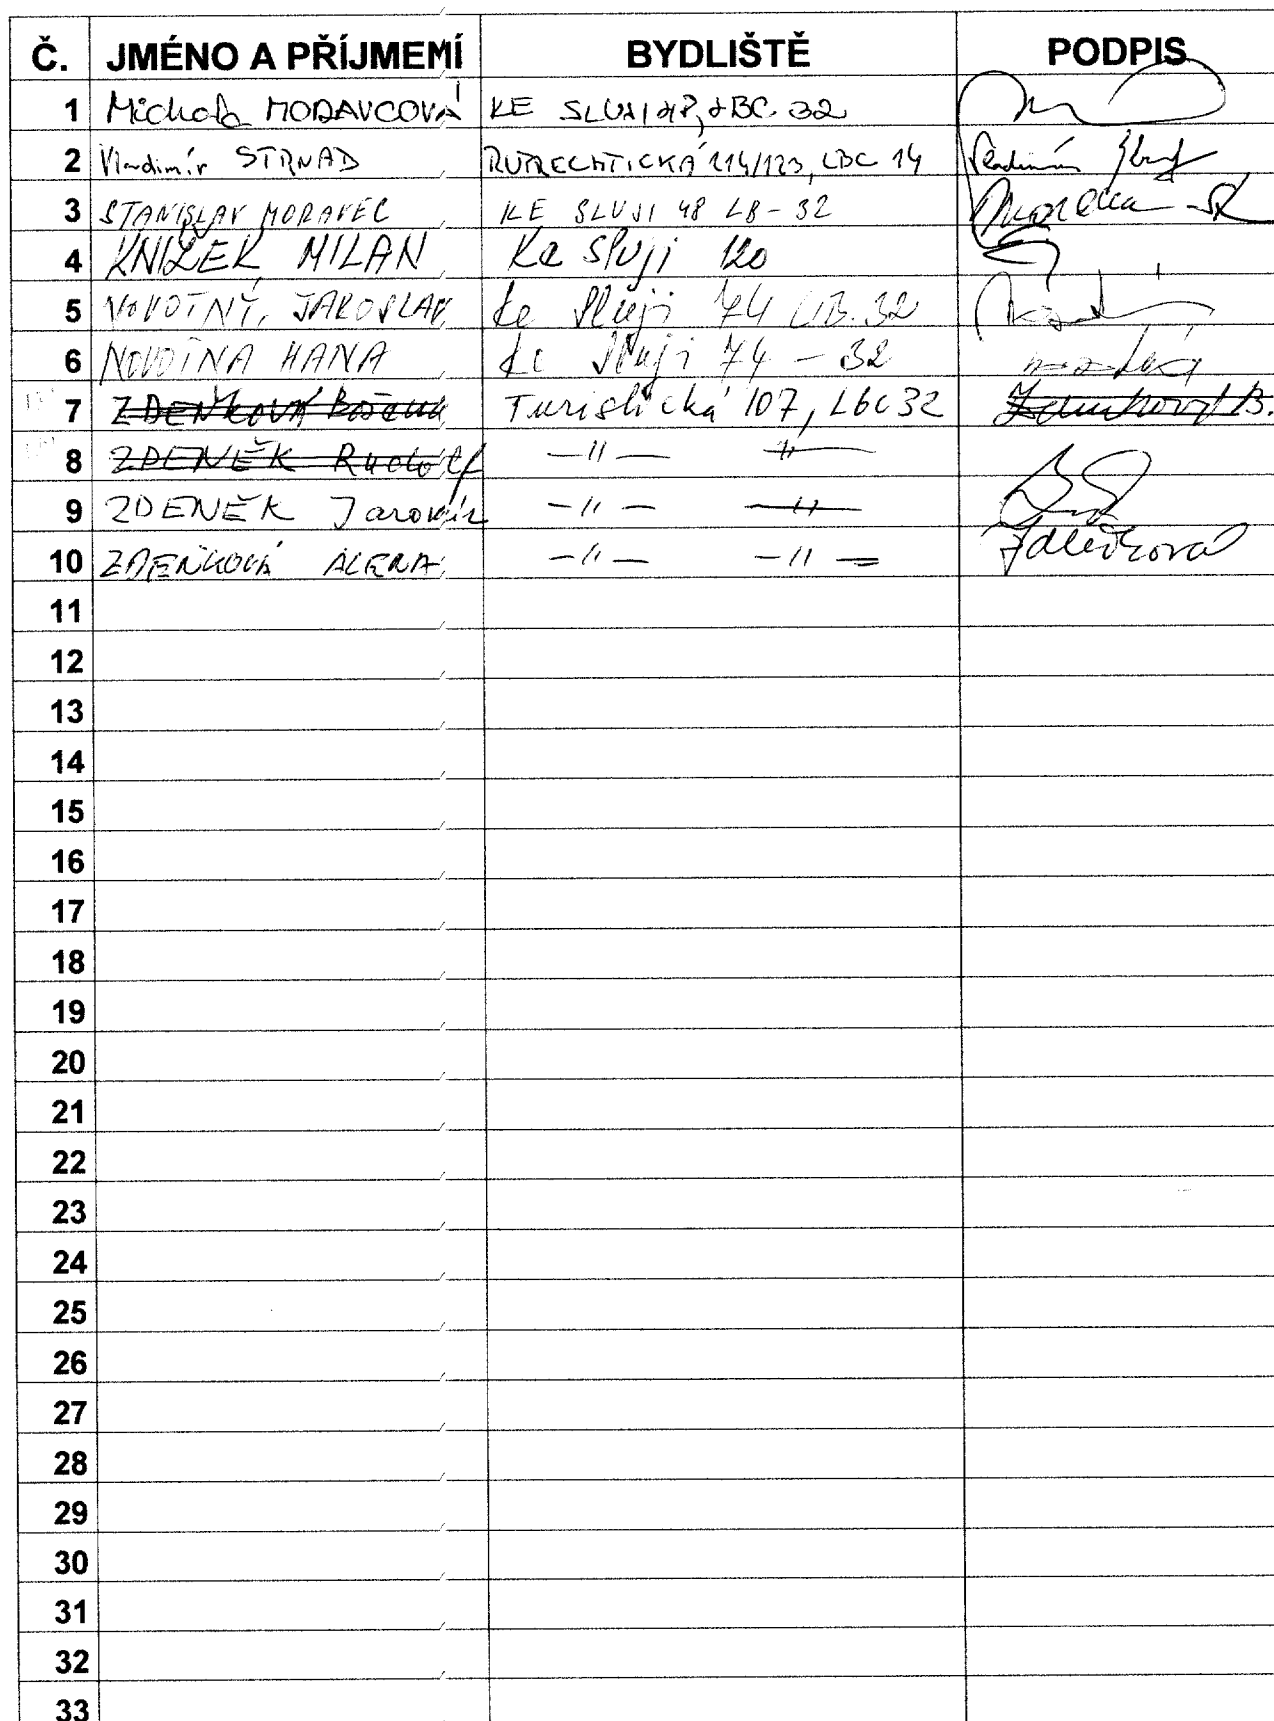 Č. JMÉNO A PŘÍJMEMÍ BYDLIŠTĚ PODPIS
1 Michala MORAVCOVÁ KE SLUJI 48, LBC. 32
2 Vladimír STRNAD RUPRECHTICKÁ 214/123, LBC 14 Vladimír
3 STANISLAV MORAVEC KE SLUJI 48 LB-32
4 KNIŽEK MILAN Ke Sluji 120
5 NOVOTNÝ, JAROSLAV Ke Sluji 74 LIB. 32
6 NOVOTNA HANA Ke Sluji 74 - 32
7 ZDEŇKOVÁ Božena Turistická 107, LBC 32 Zdeňková B.
8 ZDENĚK Rudolf -"- -"-
9 ZDENĚK Jaromír -"- -"-
10 ZDEŇKOVÁ ALENA -"- -"- Zdeňková
11
12
13
14
15
16
17
18
19
20
21
22
23
24
25
26
27
28
29
30
31
32
33